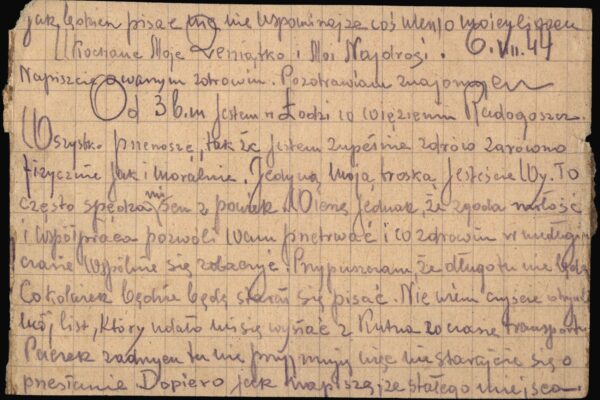 jak będziesz pisać nie wspominaj że coś wiesz o mojej
Kochane Moje Żeniątko i Moi Najdrożsi. 6.VIII.44
Napiszcie o waszym zdrowiu. Pozdrawiam znajomych
Od 3 b.m jestem w Łodzi w więzieniu Radogoszcz.
Wszystko przenoszę, tak że jestem zupełnie zdrów zarówno
fizycznie jak i moralnie. Jedyną moją troską jesteście Wy. To
często spędza mi sen z powiek. Wierzę jednak, że zgoda miłość
i współpraca pozwoli Wam przetrwać i w zdrowiu w niedługim
czasie wspólnie się zobaczyć. Przypuszczam, że długo tu nie będę
Cokolwiek będzie będę starał się pisać. Nie wiem czyście otrzymali
mój list, który udało mi się wysłać z Kutna w czasie transportu
Paczek żadnych tu nie przyjmują więc nie starajcie się o
przesłanie Dopiero jak napiszę, ze stałego miejsca.